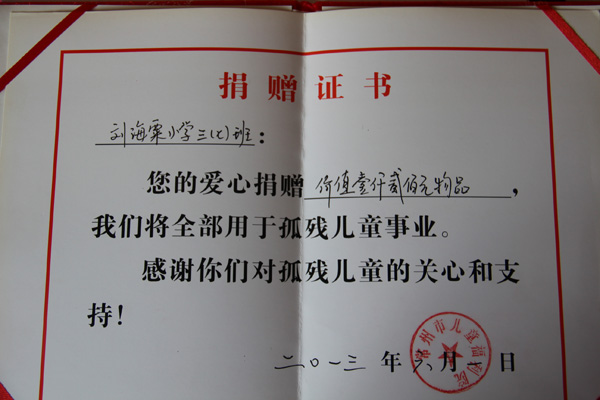 捐赠证书
刘海粟小学三(七)班：
您的爱心捐赠 价值壹仟贰佰元物品，
我们将全部用于孤残儿童事业。
感谢你们对孤残儿童的关心和支
持！
常州市儿童福利院
二〇一三年六月 日